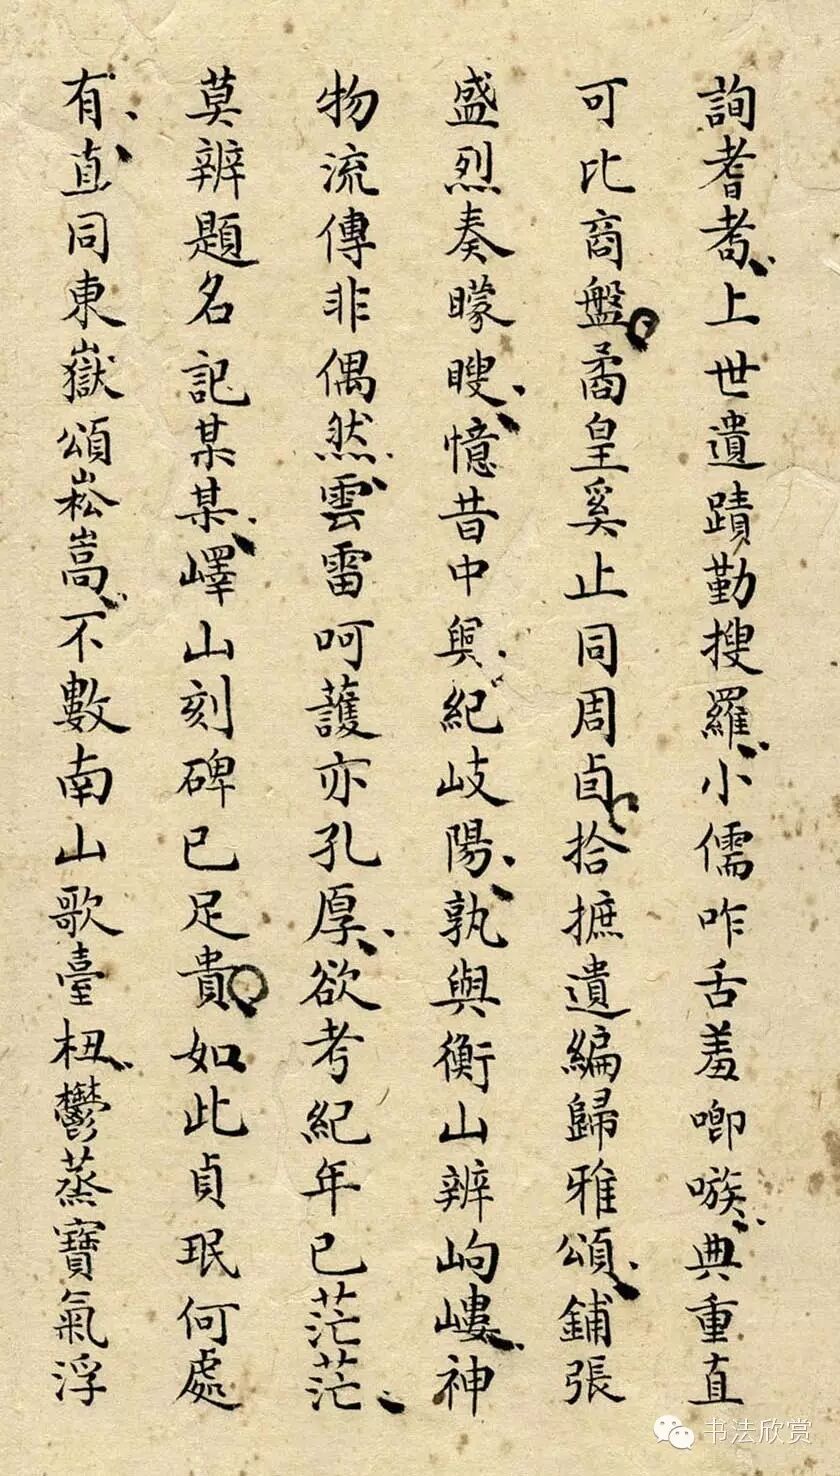 詢耆耇上世遺蹟勤搜羅小儒咋舌羞唧嗾典重直
可比商盤矞皇奚止同周卣拾摭遺編歸雅頌鋪張
盛烈奏矇瞍憶昔中興紀岐陽孰與衡山辨岣嶁神
物流傳非偶然雲雷呵護亦孔厚欲考紀年已茫茫
莫辨題名記某某嶧山刻碑已足貴如此貞珉何處
有直同東嶽頌崧嵩不數南山歌臺杻鬱蒸寶氣浮
书法欣赏